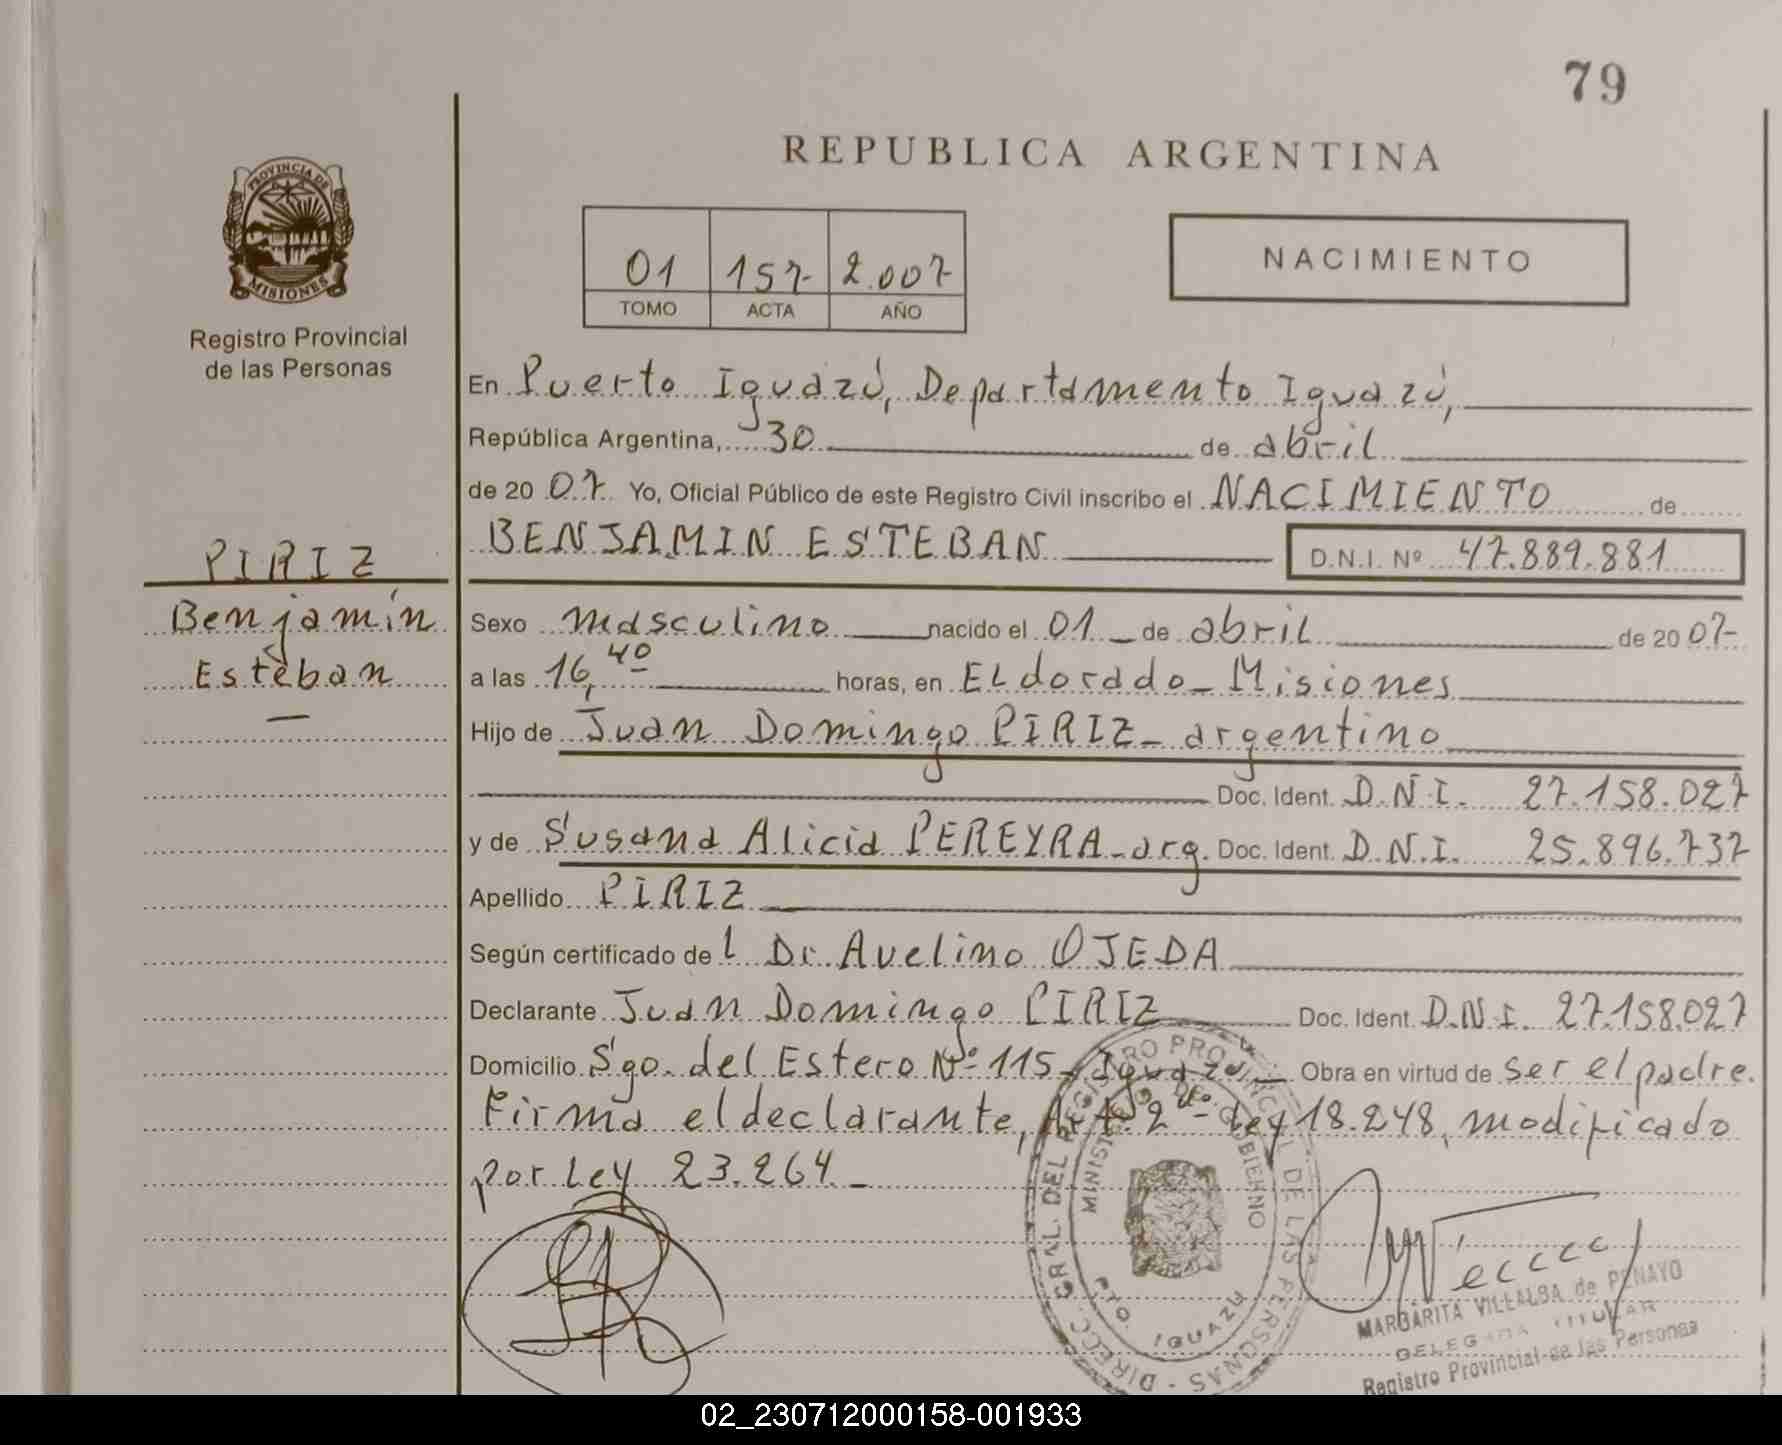 79
REPUBLICA ARGENTINA
PROVINCIA DE
MISIONES
Registro Provincial
de las Personas
01 157- 2.007-
TOMO ACTA AÑO
NACIMIENTO
En Puerto Iguazú, Departamento Iguazú,
República Argentina, 30 de abril
de 20 07 Yo, Oficial Público de este Registro Civil inscribo el NACIMIENTO de
BENJAMIN ESTEBAN D.N.I. Nº 47.889.881
PIRIZ
Benjamín
Esteban
Sexo masculino nacido el 01 de abril de 20 07-
a las 16,40 horas, en Eldorado - Misiones
Hijo de Juan Domingo PIRIZ - argentino
Doc. Ident. D.N.I. 27.158.027
y de Susana Alicia PEREYRA - arg. Doc. Ident. D.N.I. 25.896.737
Apellido PIRIZ
Según certificado de l Dr. Avelino OJEDA
Declarante Juan Domingo PIRIZ Doc. Ident. D.N.I. 27.158.027
Domicilio Sgo. del Estero Nº 115 - Iguazú - Obra en virtud de ser el padre.
Firma el declarante, Art. 2do. - Ley 18.248, modificado
por Ley 23.264. -
DIRECC. GRAL. DEL REGISTRO PROVINCIAL DE LAS PERSONAS -
MINISTERIO DE GOBIERNO
PTO. IGUAZU
MARGARITA VILLALBA de PENAYO
DELEGADA TITULAR
Registro Provincial de las Personas
02_230712000158-001933